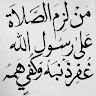 مَنْ لَزِمَ الصَّلَاةَ
عَلَى رَسُولِ اللّٰهِ
غُفِرَ ذَنْبُهُ وَكُفِيَ هَمَّهُ